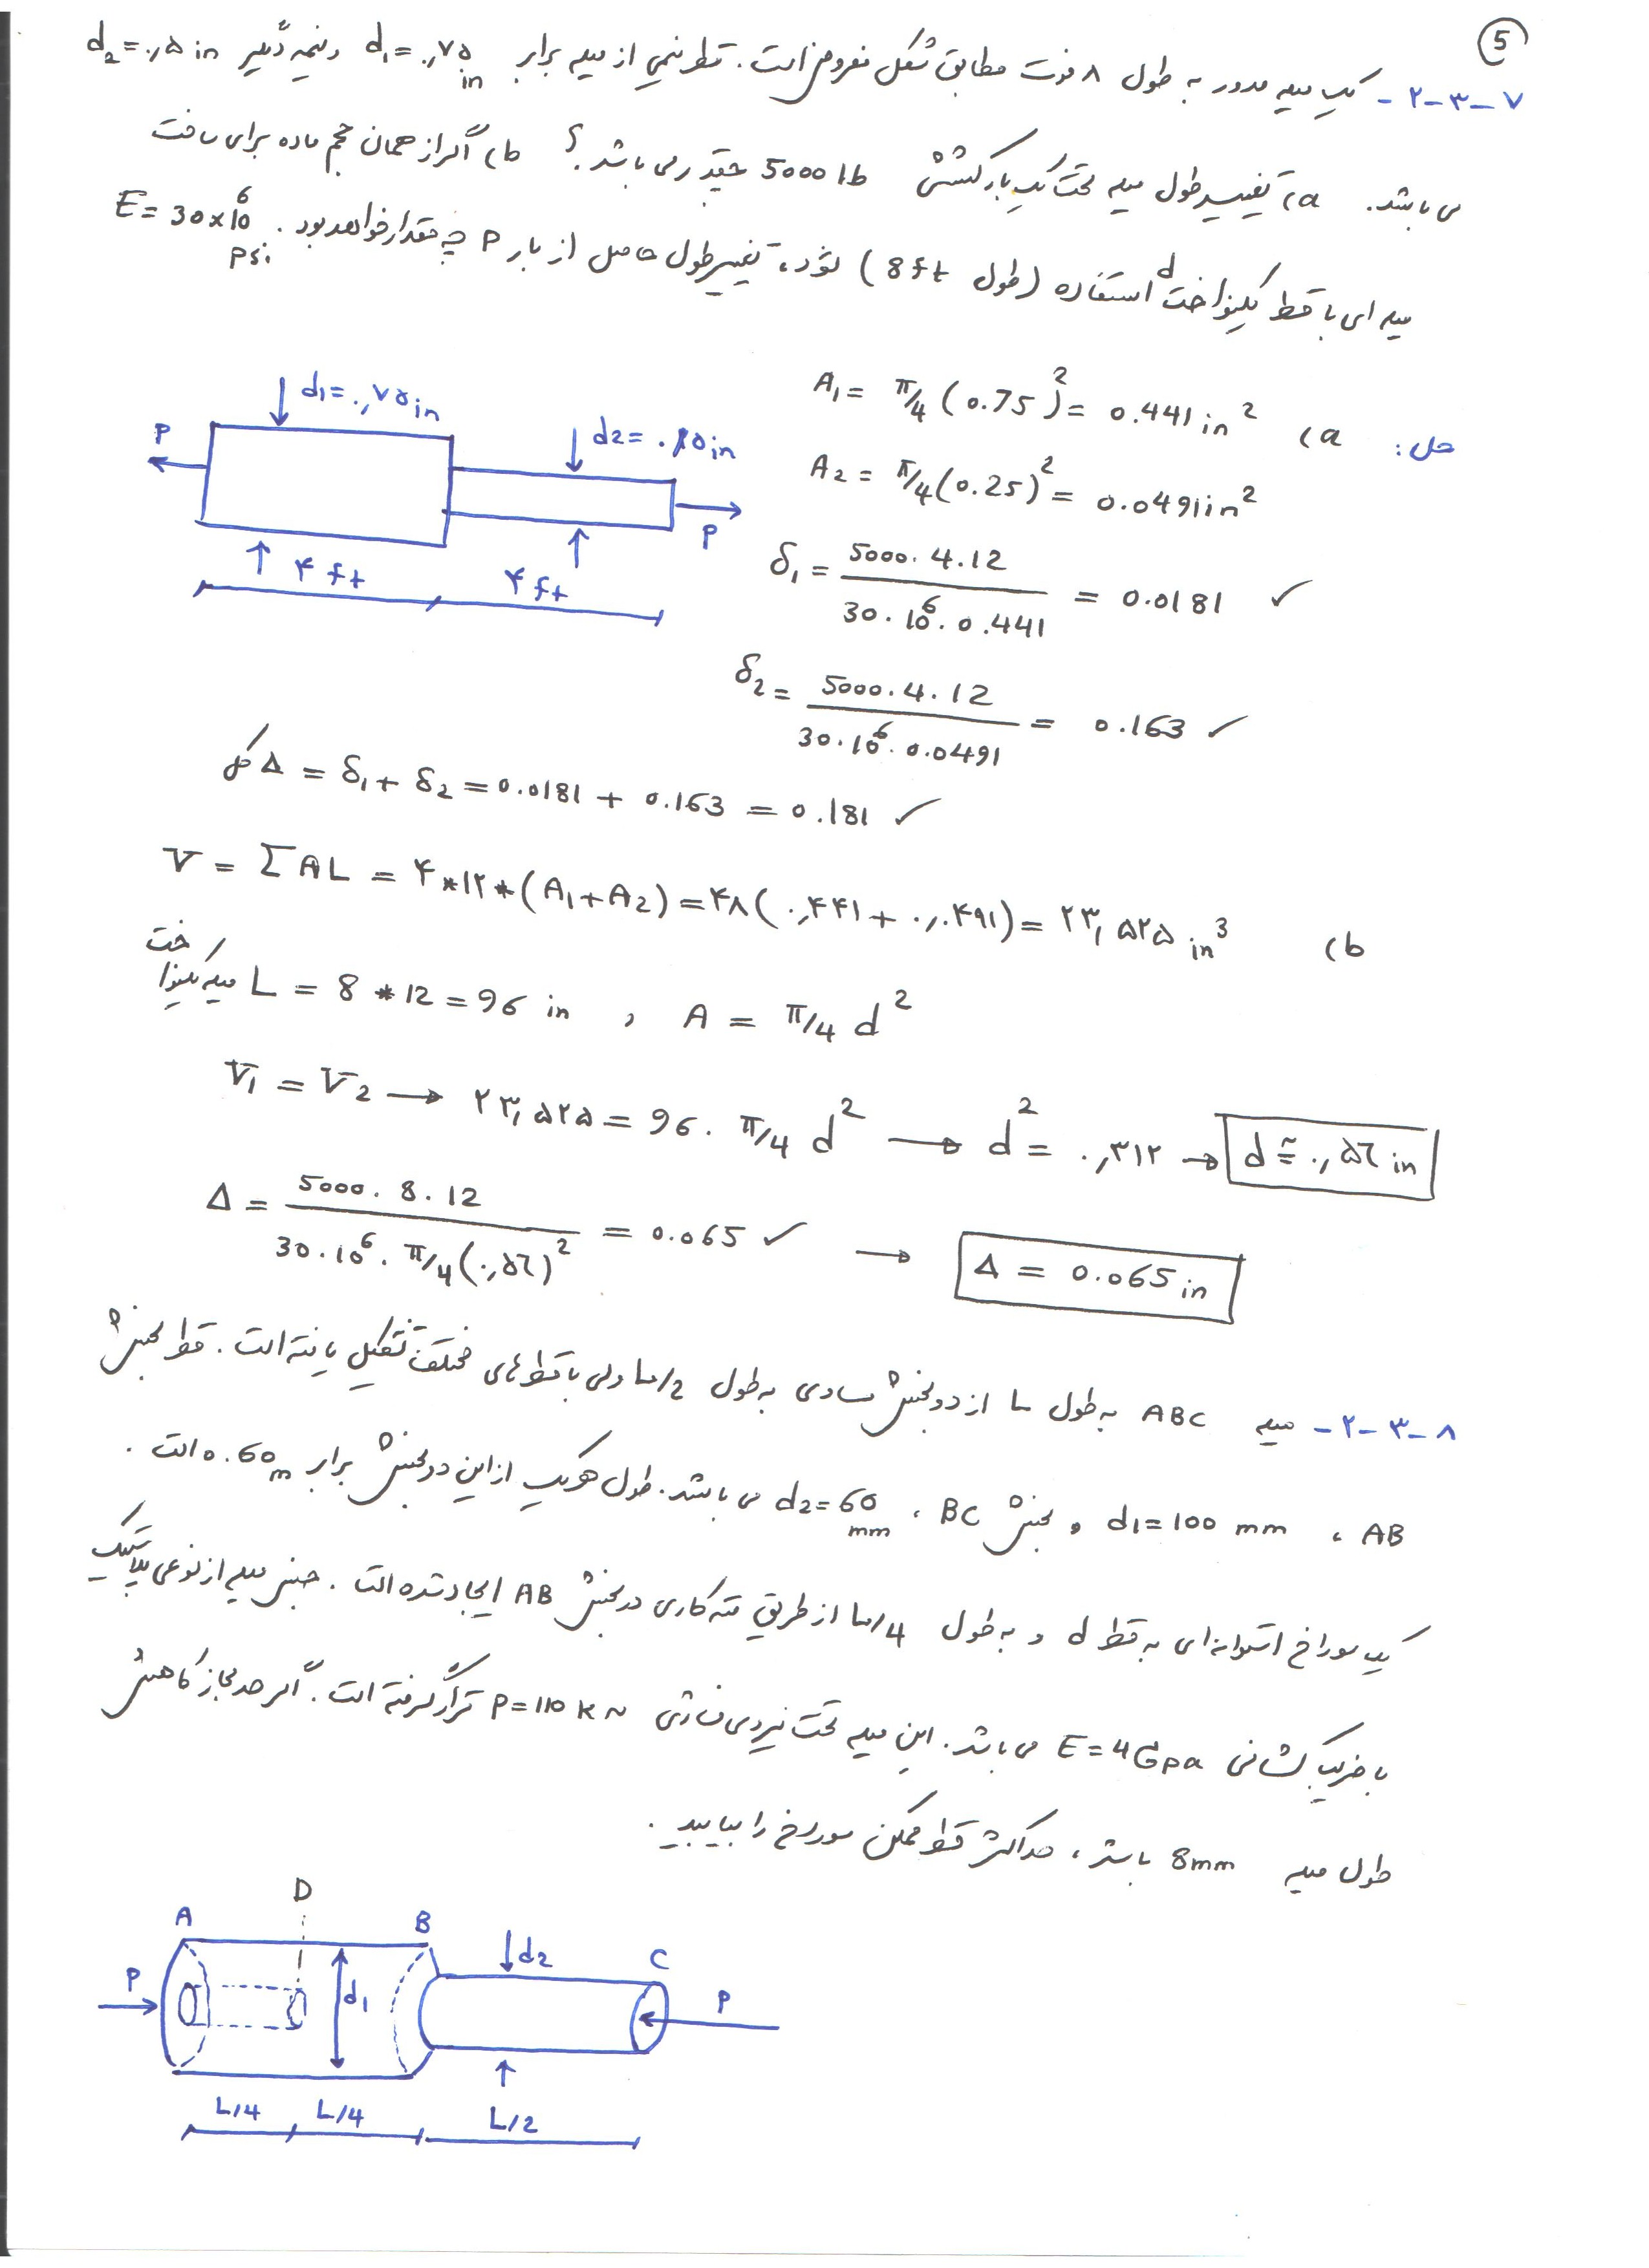 5
۲-۳-۷- یک میله مدور به طول ۸ فوت مطابق شکل مفروض است. قطر نیمی از میله برابر d1=۰,۷۵ in و نیمه دیگر d2=۰,۵ in
می باشد. a) تغییر طول میله تحت یک بار کششی 5000 lb چقدر می باشد؟ b) اگر از همان حجم ماده برای ساخت
میله ای با قطر یکنواخت d استفاده (طول 8ft) شود، تغییر طول حاصل از بار P چه مقدار خواهد بود. E=30×10^6 psi
حل: a) A1 = π/4 (0.75)^2 = 0.441 in^2
A2 = π/4 (0.25)^2 = 0.0491 in^2
δ1 = 5000.4.12 / 30.10^6.0.441 = 0.0181 ✓
δ2 = 5000.4.12 / 30.10^6.0.0491 = 0.163 ✓
P
d1=۰,۷۵ in
d2=۰,۵ in
P
۴ ft
۴ ft
Δ کل = δ1 + δ2 = 0.0181 + 0.163 = 0.181 ✓
b) V = ΣAL = ۴*۱۲*(A1+A2) = ۴۸(۰,۴۴۱+۰,۰۴۹۱) = ۲۳,۵۲۵ in^3
میله یکنواخت L = 8*12 = 96 in , A = π/4 d^2
V1 = V2 → ۲۳,۵۲۵ = 96. π/4 d^2 → d^2 = ۰,۳۱۲ → d ≅ ۰,۵۶ in
Δ = 5000.8.12 / 30.10^6. π/4 (۰,۵۶)^2 = 0.065 ✓ → Δ = 0.065 in
۲-۳-۸- میله ABC به طول L از دو بخش مساوی به طول L/2 ولی با قطرهای مختلف تشکیل یافته است. قطر بخش
AB، d1=100 mm و بخش BC، d2=60 mm می باشد. طول هر یک از این دو بخش برابر 0.60 m است.
یک سوراخ استوانه ای به قطر d و به طول L/4 از طریق مته کاری در بخش AB ایجاد شده است. جنس میله از نوعی پلاستیک
با ضریب کشسانی E=4Gpa می باشد. این میله تحت نیروی فشاری P=110 kN قرار گرفته است. اگر حد مجاز کاهش
طول میله 8mm باشد، حداکثر قطر ممکن سوراخ را بیابید.
A
D
B
C
P
d1
d2
P
L/4
L/4
L/2